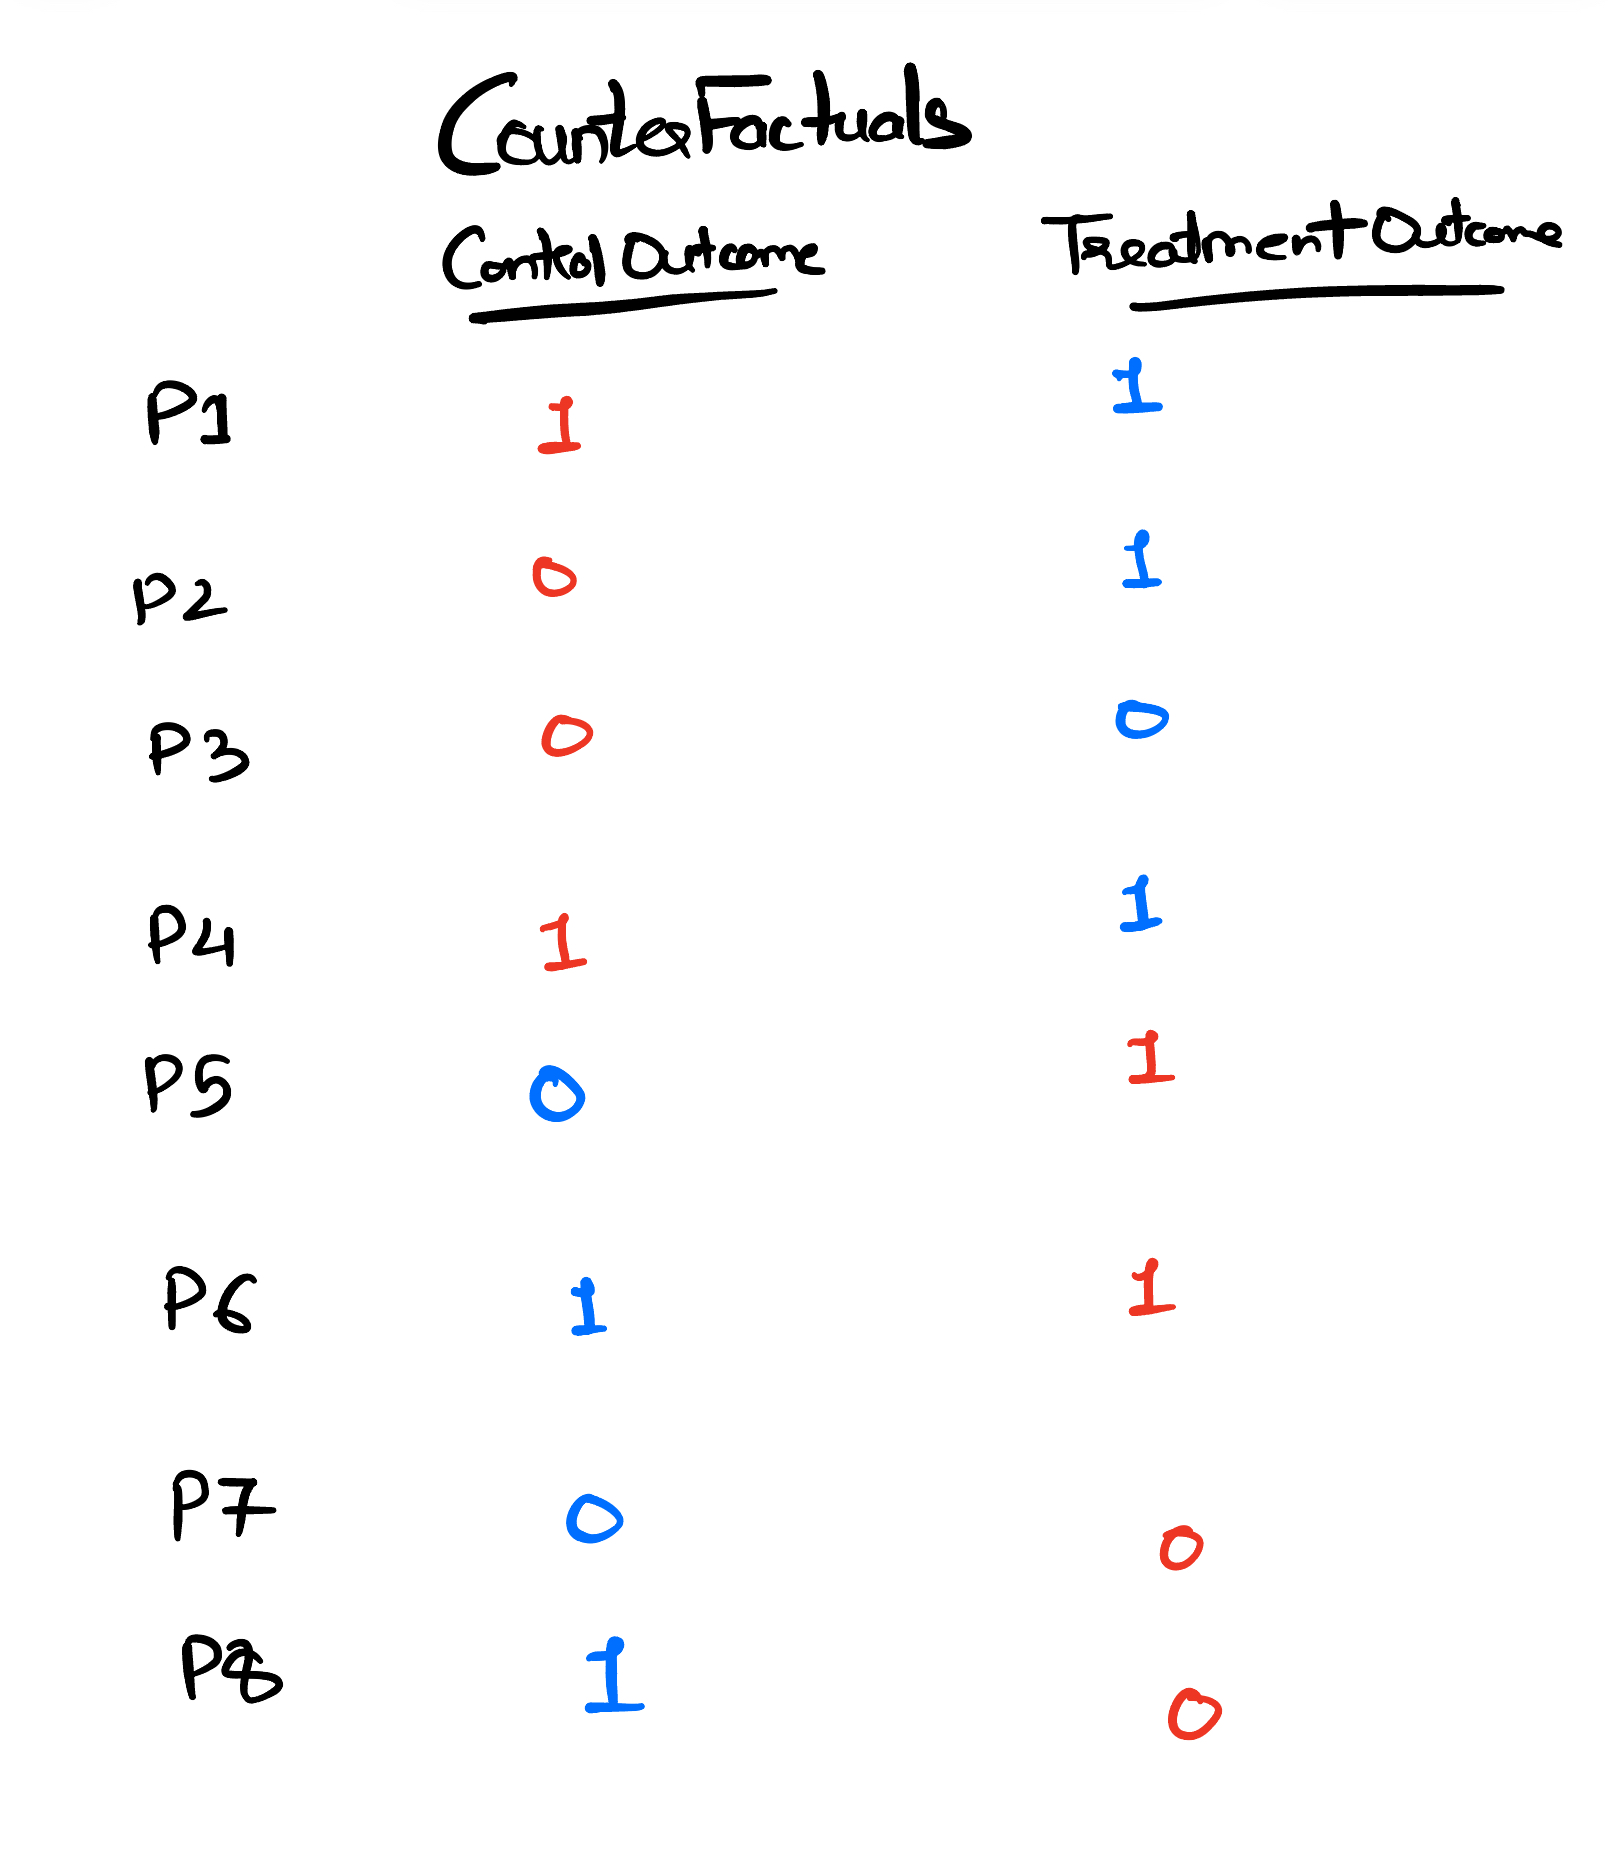 CounterFactuals
Control Outcome Treatment Outcome
P1 1 1
P2 0 1
P3 0 0
P4 1 1
P5 0 1
P6 1 1
P7 0 0
P8 1 0